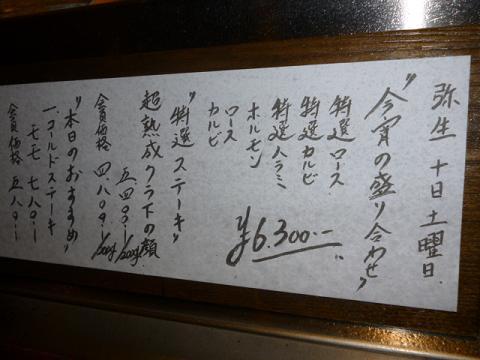 弥生 十日 土曜日
"今宵の盛り合わせ"
特選ロース
特選カルビ
特選ハラミ
ホルモン
ロース
カルビ
¥6.300.-
"特選ステーキ"
超熟成クラ下の顔
五四〇〇-/200g
会員価格 四八〇〇-/200g
"本日のおすすめ"
一コールドステーキ
七八〇.-
会員価格 五八〇.-